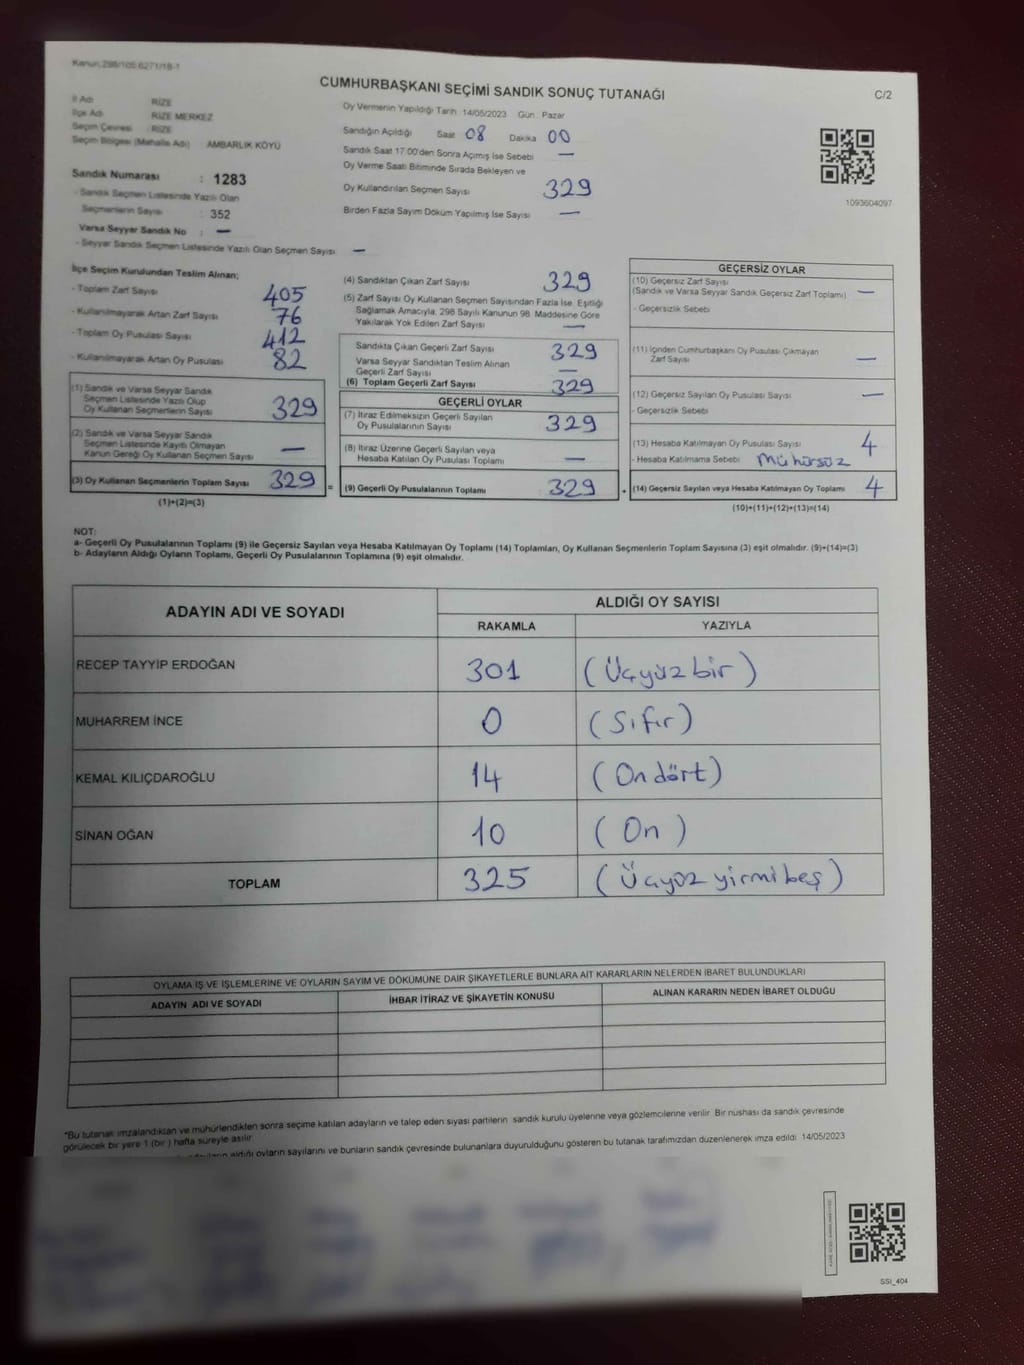 Kanun:298/105:6271/18-1
CUMHURBAŞKANI SEÇİMİ SANDIK SONUÇ TUTANAĞI
C/2
İl Adı RİZE
İlçe Adı RİZE MERKEZ
Seçim Çevresi : RİZE
Seçim Bölgesi (Mahalle Adı) AMBARLIK KÖYÜ
Sandık Numarası : 1283
- Sandık Seçmen Listesinde Yazılı Olan
Seçmenlerin Sayısı : 352
Varsa Seyyar Sandık No : —
- Seyyar Sandık Seçmen Listesinde Yazılı Olan Seçmen Sayısı —
Oy Vermenin Yapıldığı Tarih 14/05/2023 Gün Pazar
Sandığın Açıldığı Saat 08 Dakika 00
Sandık Saat 17:00'den Sonra Açılmış İse Sebebi —
Oy Verme Saati Bitiminde Sırada Bekleyen ve
Oy Kullandırılan Seçmen Sayısı 329
Birden Fazla Sayım Döküm Yapılmış İse Sayısı —
1093604097
İlçe Seçim Kurulundan Teslim Alınan;
- Toplam Zarf Sayısı 405
- Kullanılmayarak Artan Zarf Sayısı 76
- Toplam Oy Pusulası Sayısı 412
- Kullanılmayarak Artan Oy Pusulası 82
(1) Sandık ve Varsa Seyyar Sandık
Seçmen Listesinde Yazılı Olup
Oy Kullanan Seçmenlerin Sayısı 329
(2) Sandık ve Varsa Seyyar Sandık
Seçmen Listesinde Kayıtlı Olmayan
Kanun Gereği Oy Kullanan Seçmen Sayısı —
(3) Oy Kullanan Seçmenlerin Toplam Sayısı 329 =
(1)+(2)=(3)
(4) Sandıktan Çıkan Zarf Sayısı 329
(5) Zarf Sayısı Oy Kullanan Seçmen Sayısından Fazla İse, Eşitliği
Sağlamak Amacıyla, 298 Sayılı Kanunun 98. Maddesine Göre
Yakılarak Yok Edilen Zarf Sayısı —
Sandıkta Çıkan Geçerli Zarf Sayısı 329
Varsa Seyyar Sandıktan Teslim Alınan
Geçerli Zarf Sayısı —
(6) Toplam Geçerli Zarf Sayısı 329
GEÇERLİ OYLAR
(7) İtiraz Edilmeksizin Geçerli Sayılan
Oy Pusulalarının Sayısı 329
(8) İtiraz Üzerine Geçerli Sayılan veya
Hesaba Katılan Oy Pusulası Toplamı —
(9) Geçerli Oy Pusulalarının Toplamı 329 +
GEÇERSİZ OYLAR
(10) Geçersiz Zarf Sayısı
(Sandık ve Varsa Seyyar Sandık Geçersiz Zarf Toplamı) —
- Geçersizlik Sebebi
(11) İçinden Cumhurbaşkanı Oy Pusulası Çıkmayan
Zarf Sayısı —
(12) Geçersiz Sayılan Oy Pusulası Sayısı —
- Geçersizlik Sebebi
(13) Hesaba Katılmayan Oy Pusulası Sayısı 4
- Hesaba Katılmama Sebebi Mühürsüz
(14) Geçersiz Sayılan veya Hesaba Katılmayan Oy Toplamı 4
(10)+(11)+(12)+(13)=(14)
NOT:
a- Geçerli Oy Pusulalarının Toplamı (9) ile Geçersiz Sayılan veya Hesaba Katılmayan Oy Toplamı (14) Toplamları, Oy Kullanan Seçmenlerin Toplam Sayısına (3) eşit olmalıdır. (9)+(14)=(3)
b- Adayların Aldığı Oyların Toplamı, Geçerli Oy Pusulalarının Toplamına (9) eşit olmalıdır.
ADAYIN ADI VE SOYADI
ALDIĞI OY SAYISI
RAKAMLA YAZIYLA
RECEP TAYYİP ERDOĞAN 301 (Üçyüz bir)
MUHARREM İNCE 0 (Sıfır)
KEMAL KILIÇDAROĞLU 14 (On dört)
SİNAN OĞAN 10 (On)
TOPLAM 325 (Üçyüz yirmi beş)
OYLAMA İŞ VE İŞLEMLERİNE VE OYLARIN SAYIM VE DÖKÜMÜNE DAİR ŞİKAYETLERLE BUNLARA AİT KARARLARIN NELERDEN İBARET BULUNDUKLARI
ADAYIN ADI VE SOYADI İHBAR İTİRAZ VE ŞİKAYETİN KONUSU ALINAN KARARIN NEDEN İBARET OLDUĞU
*Bu tutanak imzalandıktan ve mühürlendikten sonra seçime katılan adayların ve talep eden siyasi partilerin sandık kurulu üyelerine veya gözlemcilerine verilir. Bir nüshası da sandık çevresinde
görülecek bir yere 1 (bir) hafta süreyle asılır.
aldığı oyların sayılarını ve bunların sandık çevresinde bulunanlara duyurulduğunu gösteren bu tutanak tarafımızdan düzenlenerek imza edildi. 14/05/2023
SSI_404